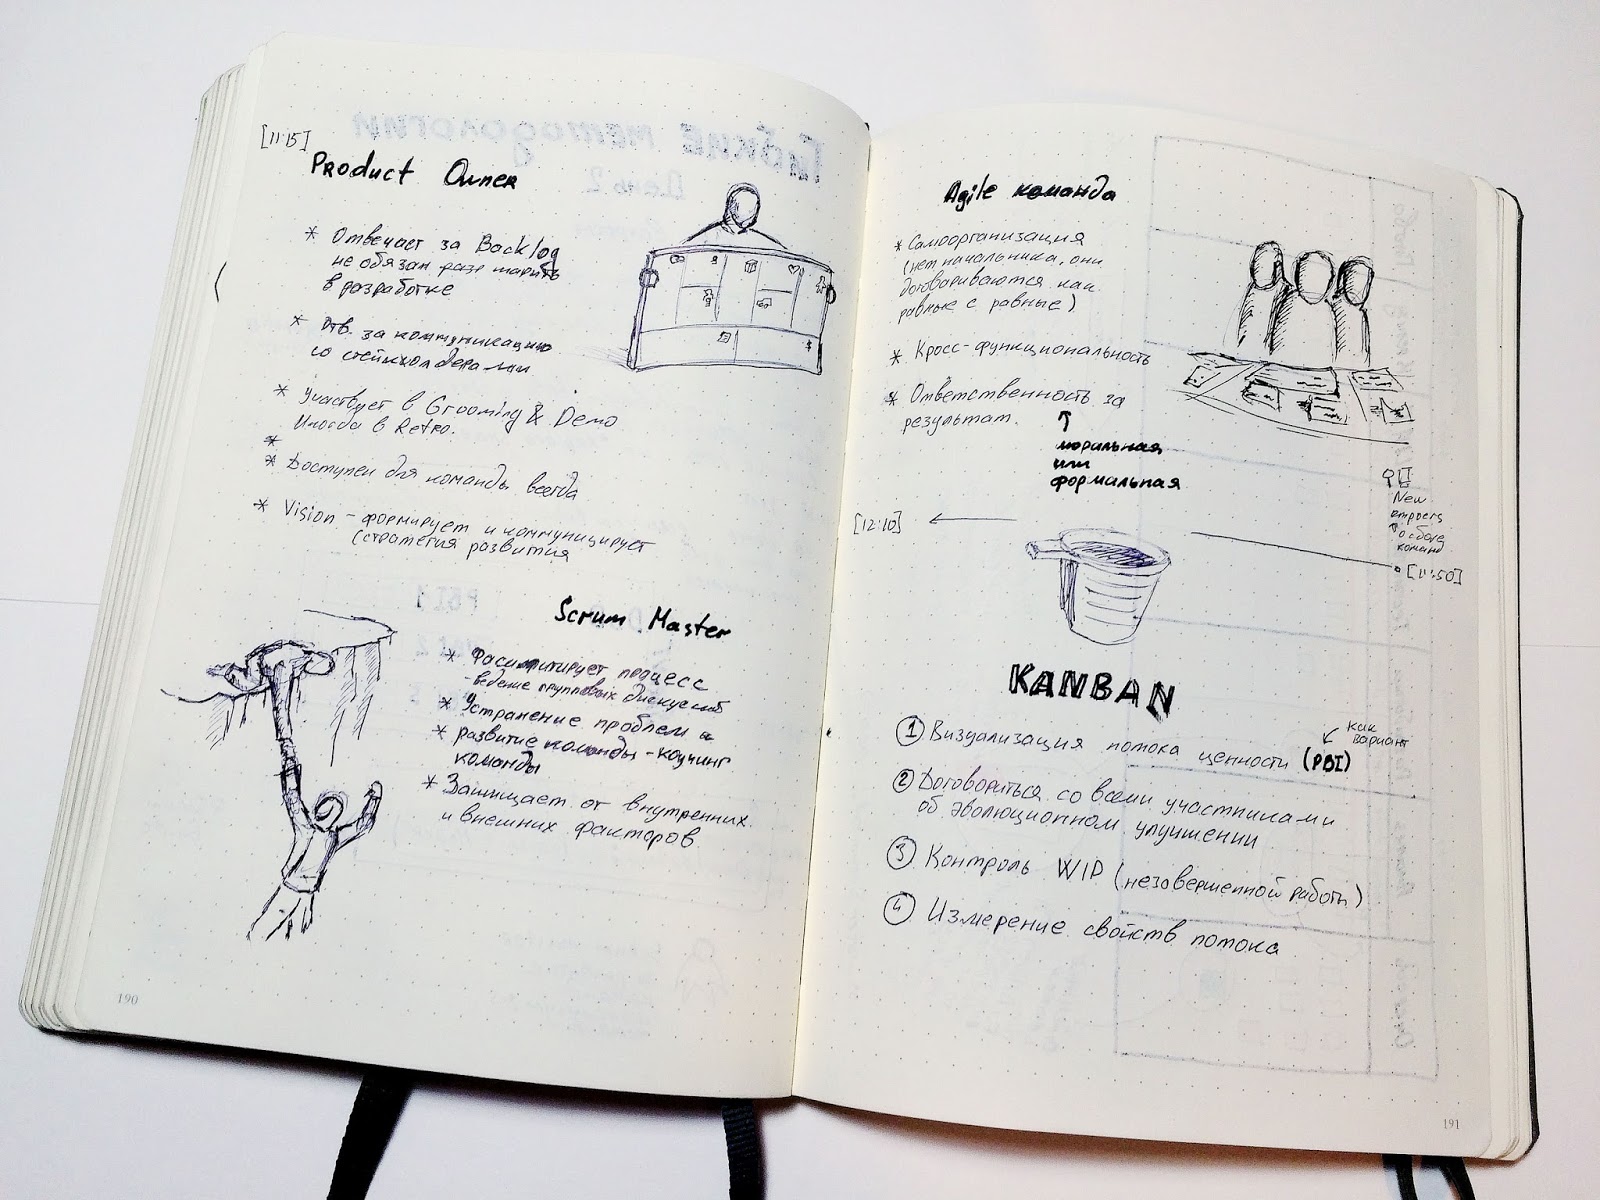 [11:15]
Product Owner
* Отвечает за Backlog
не обязан разр
в разработке
* Отв. за коммуникацию
со стейкхолдерами
* Участвует в Grooming & Demo
Иногда в Retro.
*
* Доступен для команды всегда
* Vision - формирует и коммуницирует
(стратегия развития
Scrum Master
* Фасилитирует процесс
- ведение групповых дискуссий
* Устранение проблем
* развитие команды - коучинг
команды
* Защищает от внутренних
и внешних факторов
190
Agile команда
* Самоорганизация
(нет начальника, они
договариваются как
равные с равные)
* Кросс-функциональность
* Ответственность за
результат.
моральная
или
формальная
New
о сборе
команд
[12:10]
[11:50]
KANBAN
как
вариант
① Визуализация потока ценности (PBI)
② Договориться со всеми участниками
об эволюционном улучшении
③ Контроль WIP (незавершенной работы)
④ Измерение свойств потока
191
Гибкие методологии
День 2
PBI 1